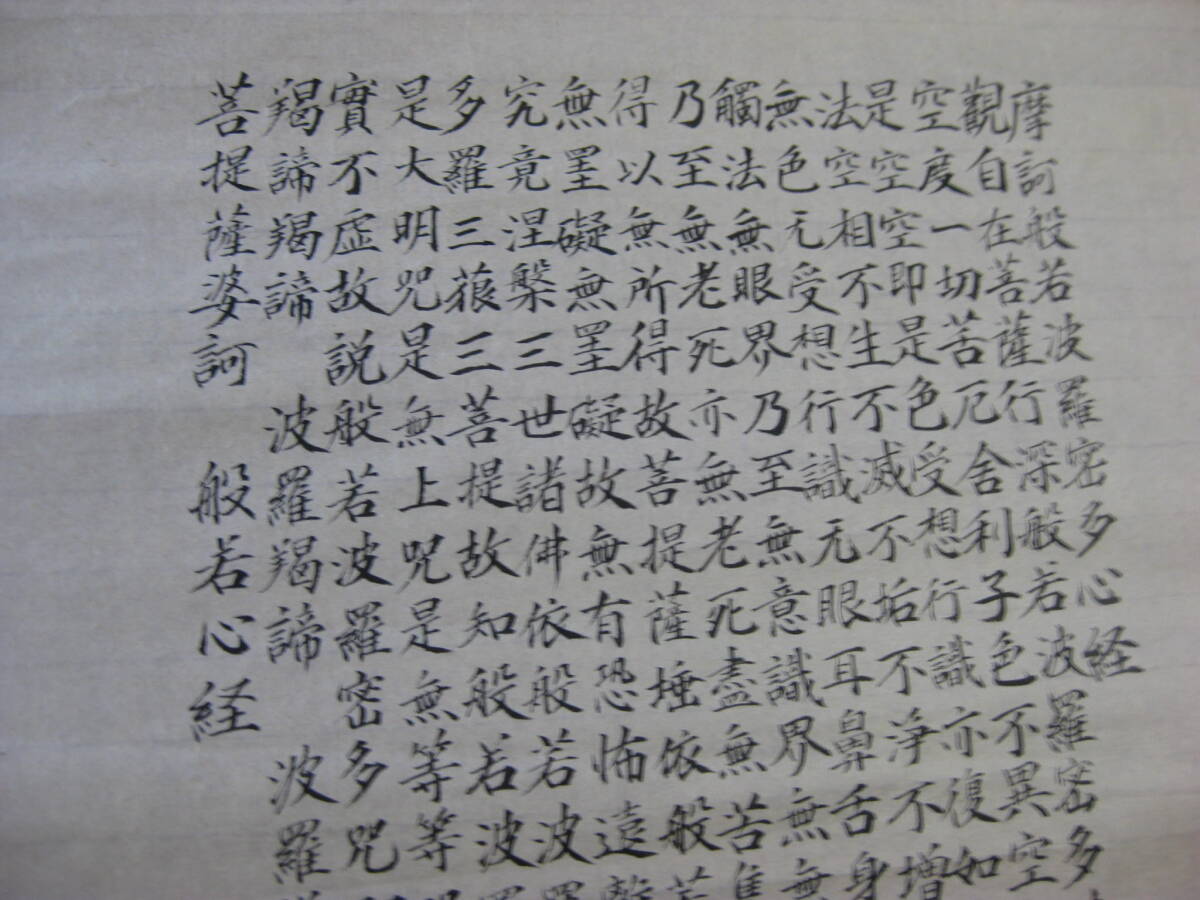 摩訶般若波羅密多心経
觀自在菩薩行深般若波羅密多
空度一切苦厄舍利子色不異空
是空空即是色受想行識亦復如
法空相不生不滅不垢不淨不增
無色无受想行識无眼耳鼻舌身
觸法無眼界乃至無意識界無無
乃至無老死亦無老死盡無苦
得以無所得故菩提薩埵依般若
無罣礙無罣礙故無有恐怖遠離
究竟涅槃三世諸佛依般若波羅
多羅三藐三菩提故知般若波羅
是大明咒是無上咒是無等等
實不虛故說般若波羅密多咒
羯諦羯諦 波羅羯諦 波羅
菩提薩婆訶 般若心経